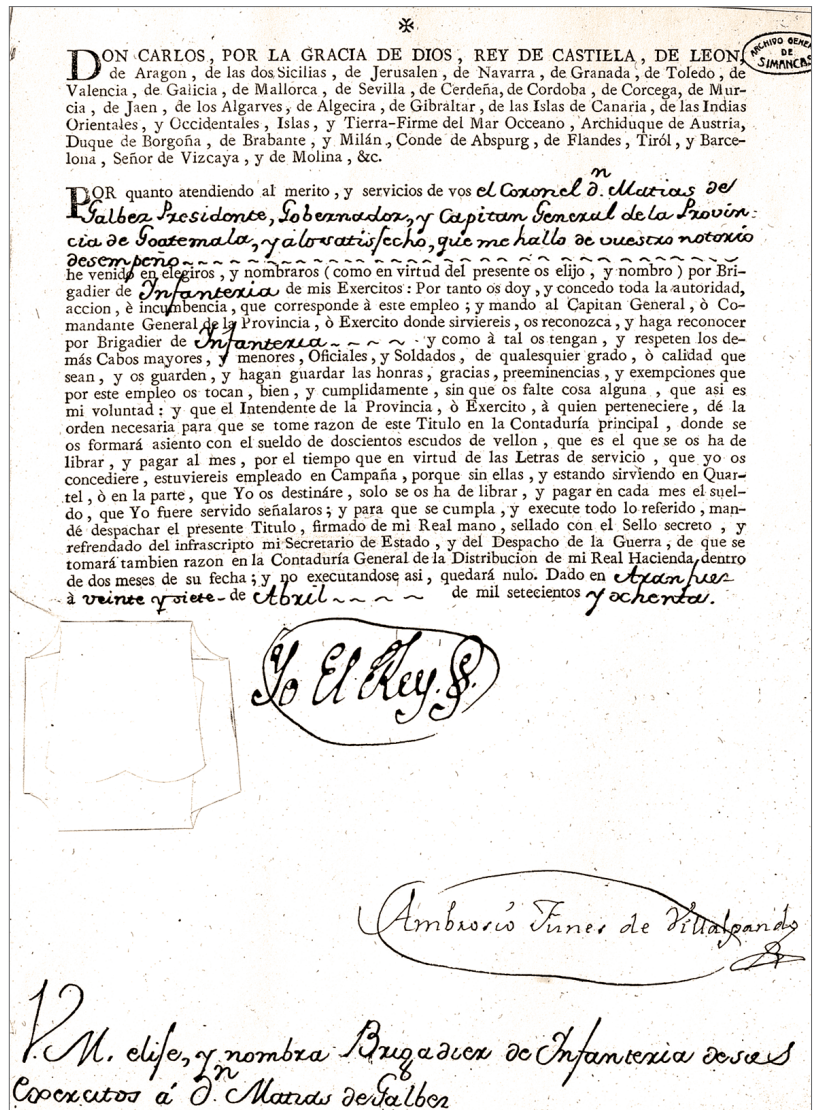 ✠
ARCHIVO GENE
DE
SIMANCAS
DON CARLOS, POR LA GRACIA DE DIOS, REY DE CASTILLA, DE LEON,
de Aragon, de las dos Sicilias, de Jerusalen, de Navarra, de Granada, de Toledo, de
Valencia, de Galicia, de Mallorca, de Sevilla, de Cerdeña, de Cordoba, de Corcega, de Mur-
cia, de Jaen, de los Algarves, de Algecira, de Gibraltar, de las Islas de Canaria, de las Indias
Orientales, y Occidentales, Islas, y Tierra-Firme del Mar Occeano, Archiduque de Austria,
Duque de Borgoña, de Brabante, y Milán, Conde de Abspurg, de Flandes, Tiról, y Barce-
lona, Señor de Vizcaya, y de Molina, &c.
POR quanto atendiendo al merito, y servicios de vos el Coronel dn. Matias de
Galbez Presidente, Gobernador, y Capitan General de la Provin-
cia de Goatemala, y a lo satisfecho, que me hallo de vuestro notorio
desempeño
he venido en elegiros, y nombraros (como en virtud del presente os elijo, y nombro) por Bri-
gadier de Infanteria de mis Exercitos: Por tanto os doy, y concedo toda la autoridad,
accion, è incumbencia, que corresponde à este empleo; y mando al Capitan General, ò Co-
mandante General de la Provincia, ò Exercito donde sirviereis, os reconozca, y haga reconocer
por Brigadier de Infanteria y como à tal os tengan, y respeten los de-
más Cabos mayores, y menores, Oficiales, y Soldados, de qualesquier grado, ò calidad que
sean, y os guarden, y hagan guardar las honras, gracias, preeminencias, y exempciones que
por este empleo os tocan, bien, y cumplidamente, sin que os falte cosa alguna, que asi es
mi voluntad: y que el Intendente de la Provincia, ò Exercito, à quien perteneciere, dé la
orden necesaria para que se tome razon de este Titulo en la Contaduría principal, donde se
os formará asiento con el sueldo de doscientos escudos de vellon, que es el que se os ha de
librar, y pagar al mes, por el tiempo que en virtud de las Letras de servicio, que yo os
concediere, estuviereis empleado en Campaña, porque sin ellas, y estando sirviendo en Quar-
tel, ò en la parte, que Yo os destináre, solo se os ha de librar, y pagar en cada mes el suel-
do, que Yo fuere servido señalaros; y para que se cumpla, y execute todo lo referido, man-
dé despachar el presente Titulo, firmado de mi Real mano, sellado con el Sello secreto, y
refrendado del infrascripto mi Secretario de Estado, y del Despacho de la Guerra, de que se
tomará tambien razon en la Contaduría General de la Distribucion de mi Real Hacienda dentro
de dos meses de su fecha; y no executandose asi, quedará nulo. Dado en Aranjuez
à veinte y siete de Abril de mil setecientos y ochenta.
Yo El Rey.
Ambrosio Funes de Villalpando
V. M. elije, y nombra Brigadier de Infanteria de sus
Exercitos á dn. Matias de Galbez